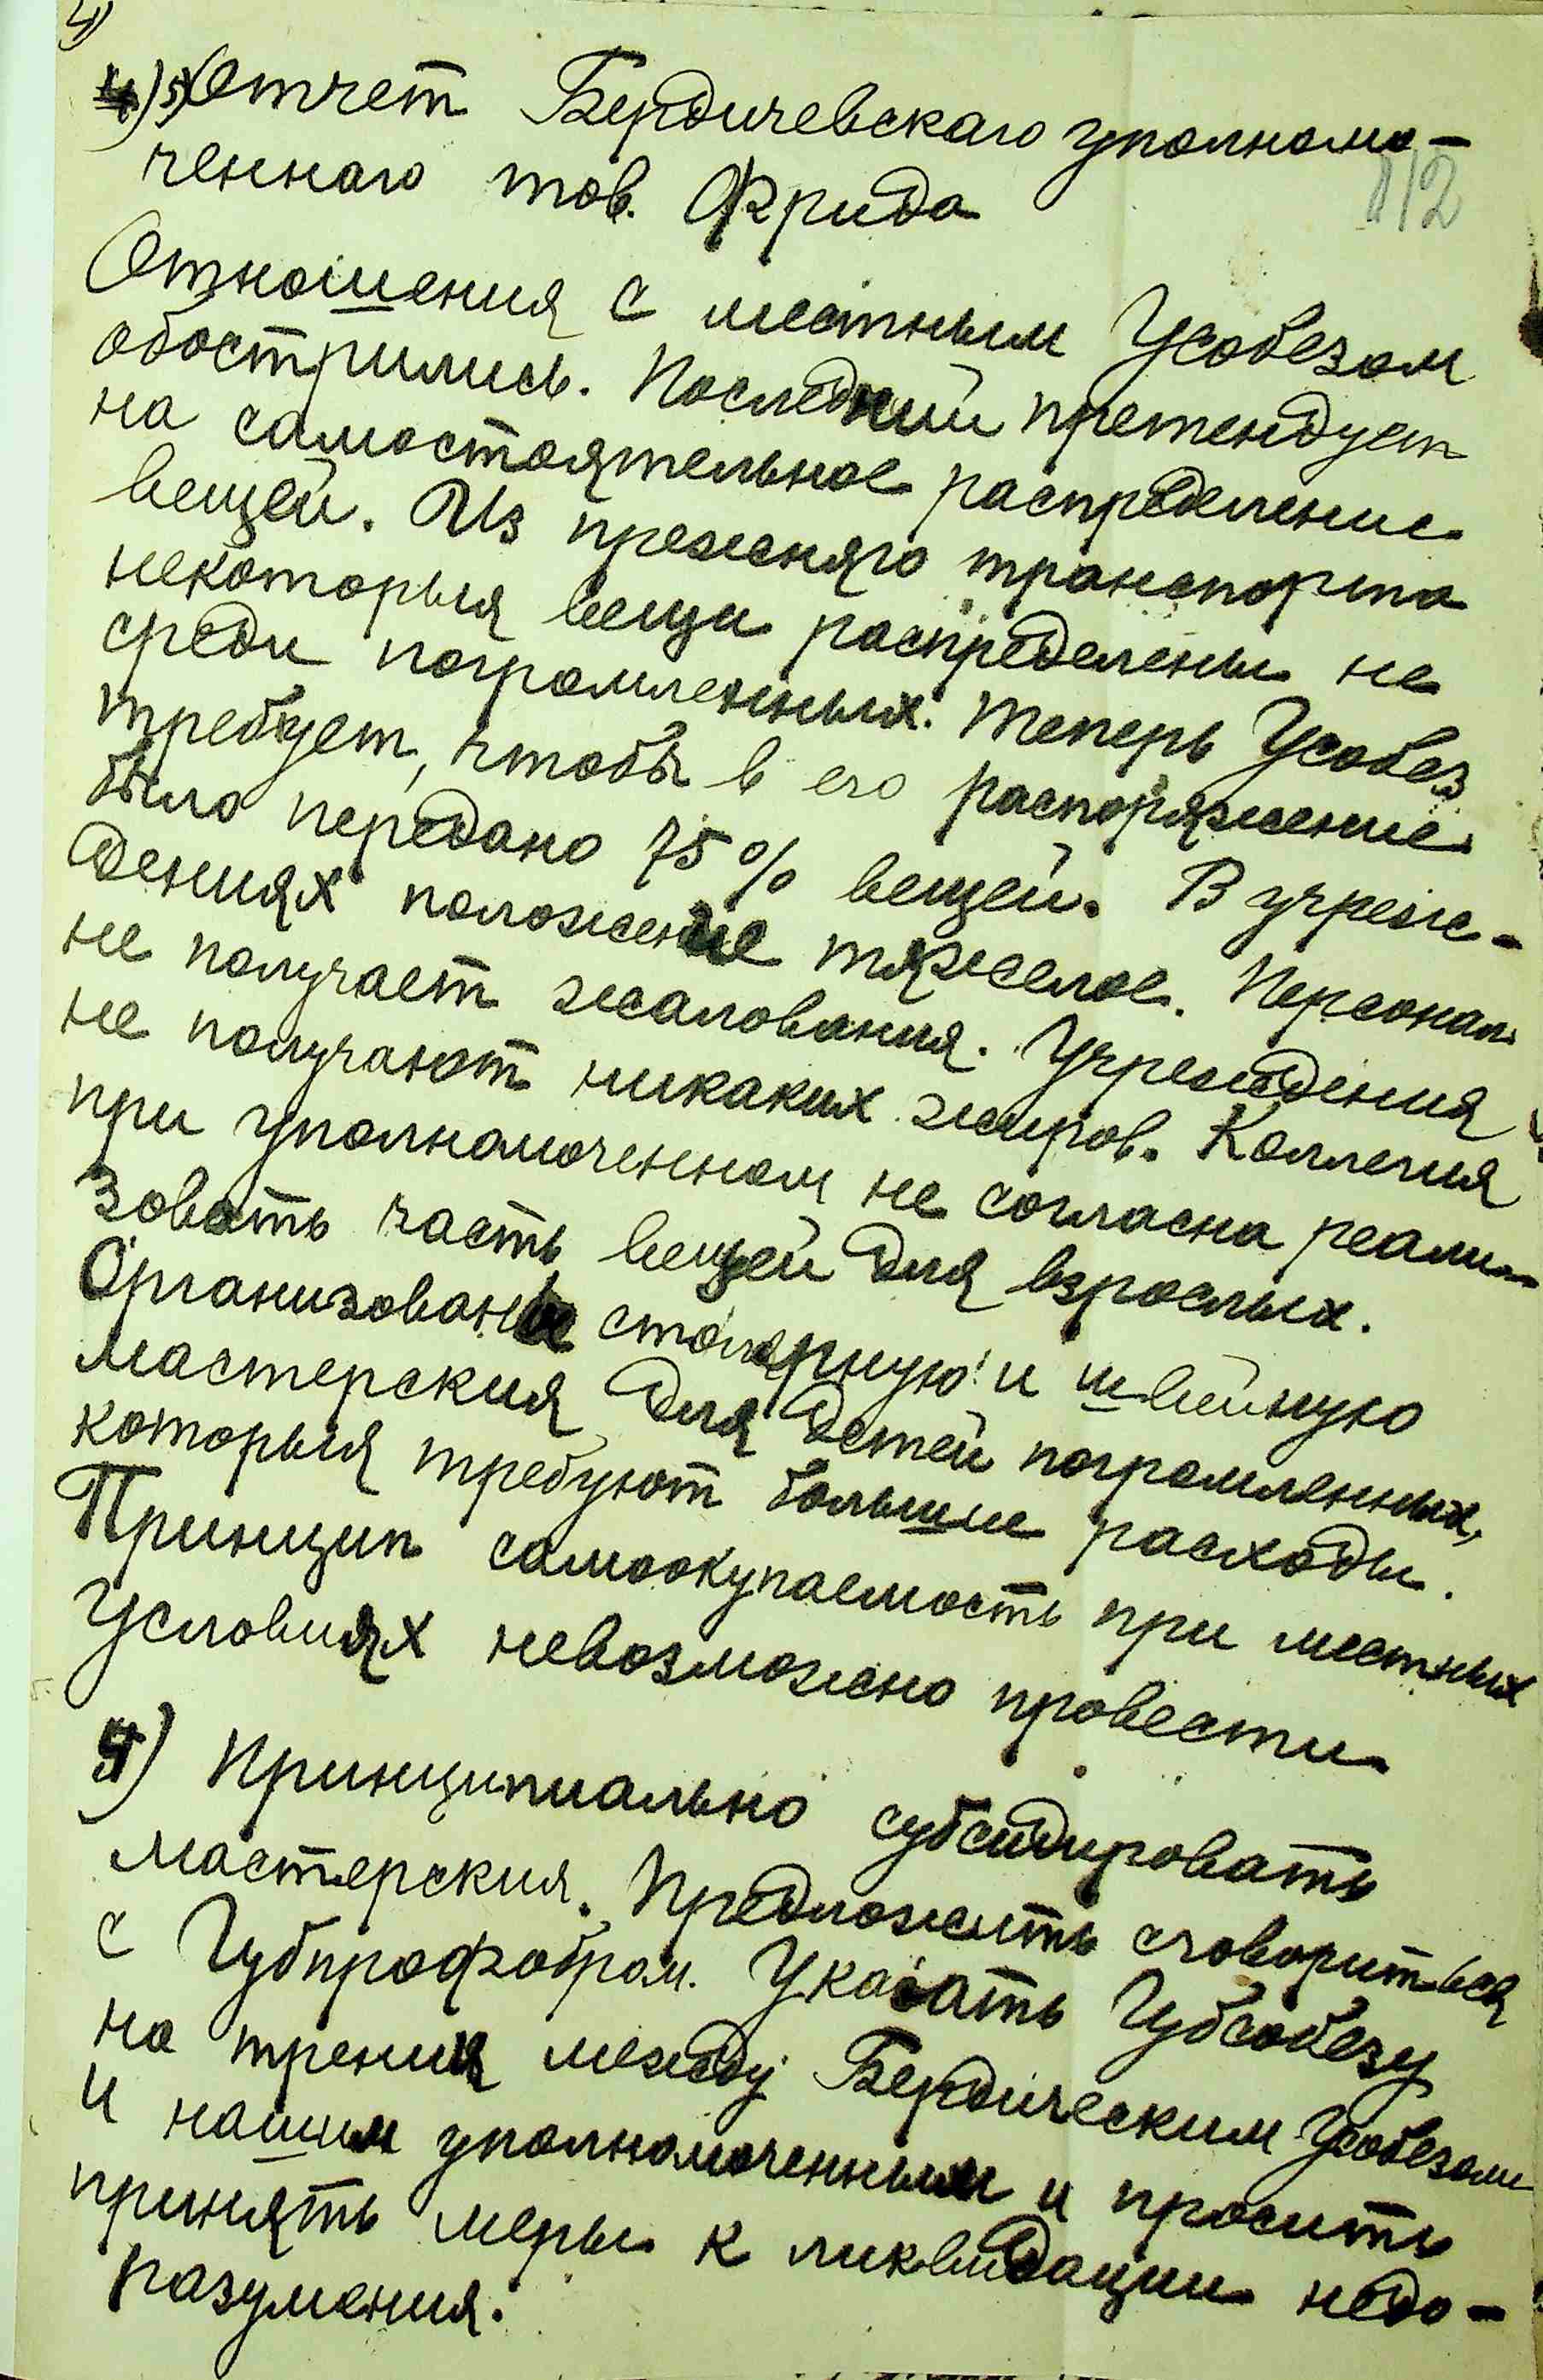 4)
4) 5) Отчет Бердичевскаго уполномо-
ченнаго тов. Фрида
112
Отношения с местным Усобезом
обострились. Последний претендует
на самостоятельное распределение
вещей. Из прежняго транспорта
некоторыя вещи распределены не
среди погромленных. Теперь Усобез
требует, чтобы в его распоряжение
было передано 75% вещей. В учреж-
дениях положение тяжелое. Персонал
не получает жалования. Учреждения
не получают никаких жиров. Коллегия
при уполномоченном не согласна реали-
зовать часть вещей для взрослых.
Организованы столярную и швейную
мастерския для детей погромленных,
которыя требуют большие расходы.
Принцип самоокупаемость при местных
условиях невозможно провести
Принципиально субсидировать
мастерския. Предложить сговориться
с Губпрофобром. Указать Губсобезу
на трения между Бердическим Усобезом
и нашим уполномоченным и просить
принять меры к ликвидации недо-
разумения.